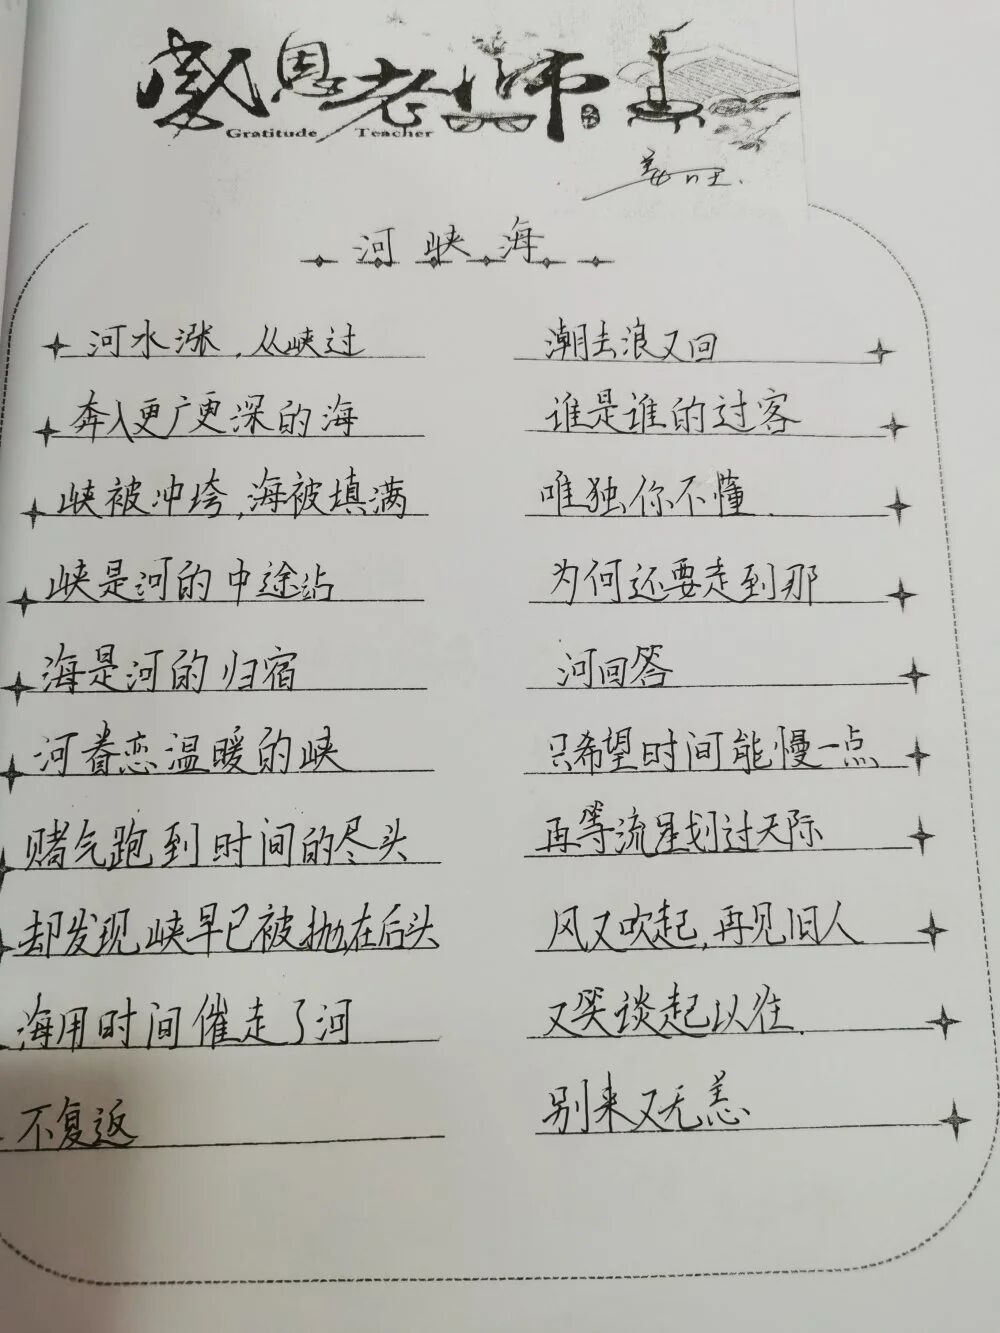 感恩老师
Gratitude Teacher
河峡海
河水涨，从峡过
奔入更广更深的海
峡被冲垮，海被填满
峡是河的中途站
海是河的归宿
河眷恋温暖的峡
赌气跑到时间的尽头
却发现峡早已被抛在后头
海用时间催走了河
不复返
潮去浪又回
谁是谁的过客
唯独你不懂.
为何还要走到那
河回答
只希望时间能慢一点
再等流星划过天际
风又吹起，再见旧人
又笑谈起以往.
别来又无恙